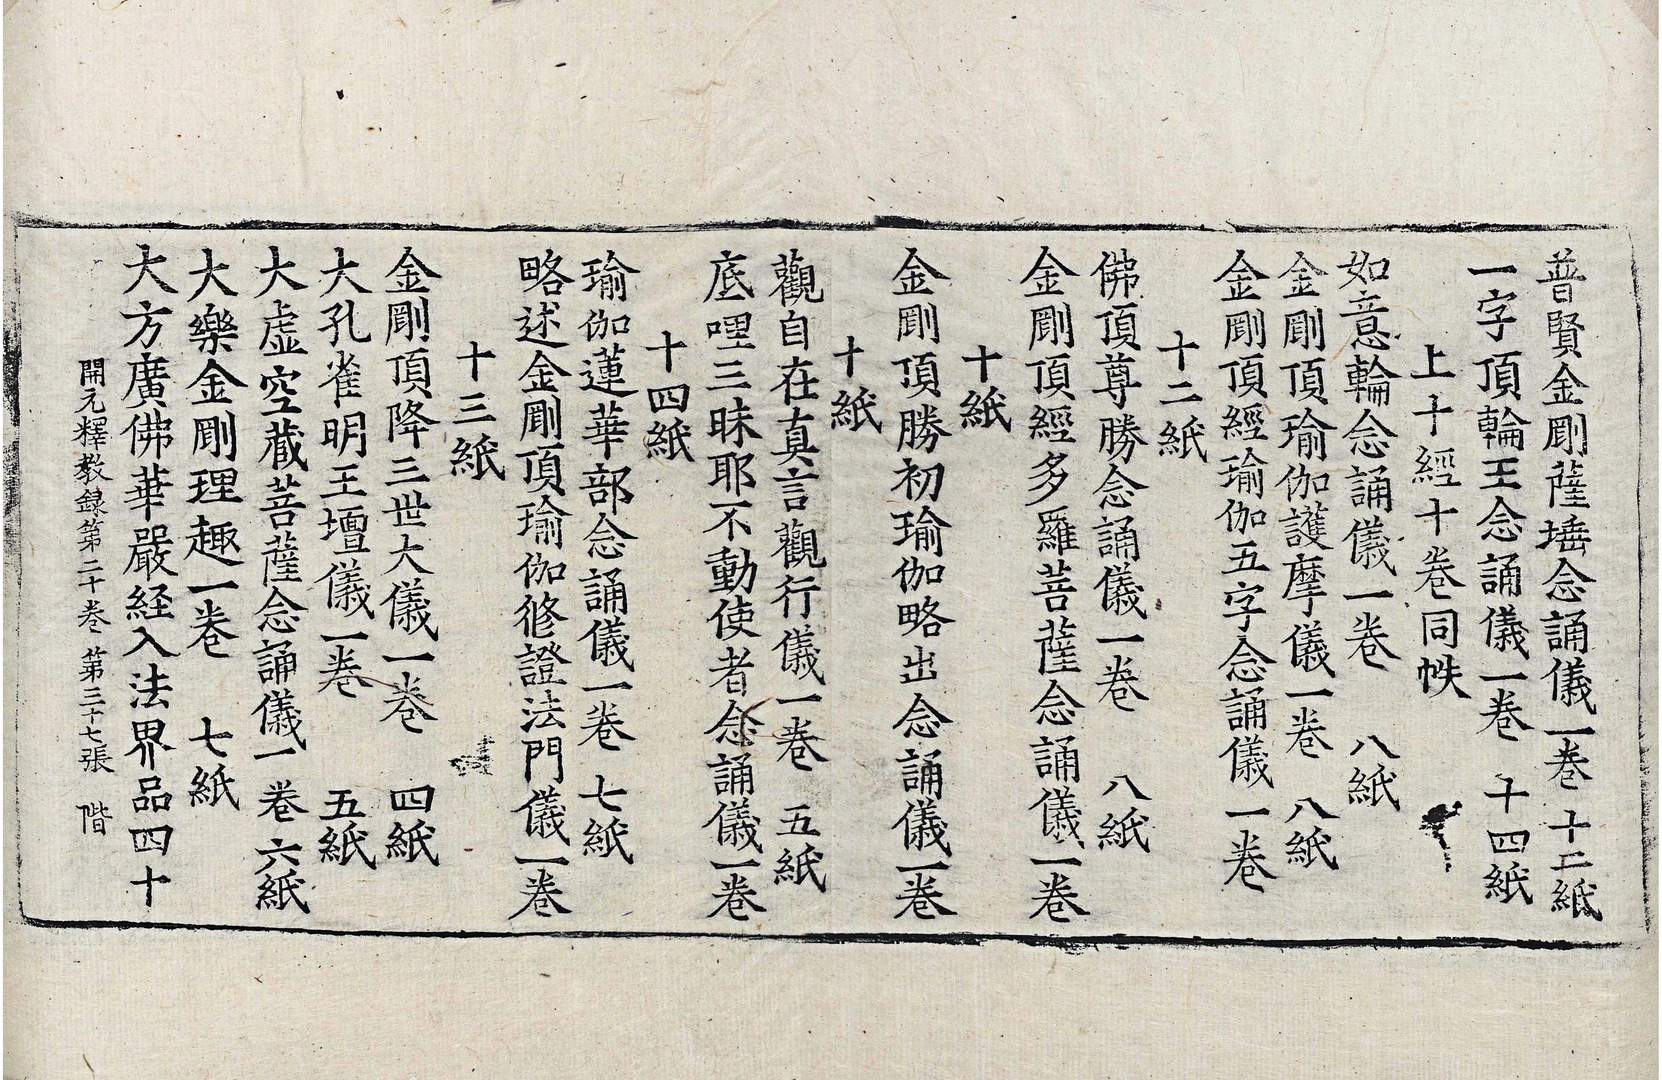 普賢金剛薩埵念誦儀一卷 十二紙
一字頂輪王念誦儀一卷 十四紙
上十經十卷同帙
如意輪念誦儀一卷 八紙
金剛頂瑜伽護摩儀一卷 八紙
金剛頂經瑜伽五字念誦儀一卷
十二紙
佛頂尊勝念誦儀一卷 八紙
金剛頂經多羅菩薩念誦儀一卷
十紙
金剛頂勝初瑜伽略出念誦儀一卷
十紙
觀自在真言觀行儀一卷 五紙
底哩三昧耶不動使者念誦儀一卷
十四紙
瑜伽蓮華部念誦儀一卷 七紙
略述金剛頂瑜伽修證法門儀一卷
十三紙
金剛頂降三世大儀一卷 四紙
大孔雀明王壇儀一卷 五紙
大虛空藏菩薩念誦儀一卷 六紙
大樂金剛理趣一卷 七紙
大方廣佛華嚴経入法界品四十
開元釋教録第二十卷 第三十七張 階